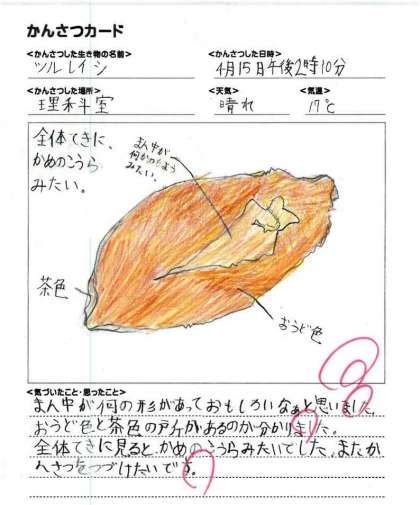 かんさつカード
<かんさつした生き物の名前>
ツルレイシ
<かんさつした日時>
4月15日午後2時10分
<かんさつした場所>
理科室
<天気>
晴れ
<気温>
17℃
全体てきに、
かめのこうら
みたい。
まん中が
何かの
みたい。
茶色
おうど色
<気づいたこと・思ったこと>
まん中が何の形があっておもしろいなぁと思いました。
おうど色と茶色の があるのか分かりました。
全体てきに見ると、かめのこうらみたいでした。またか
んさつをつづけたいです。